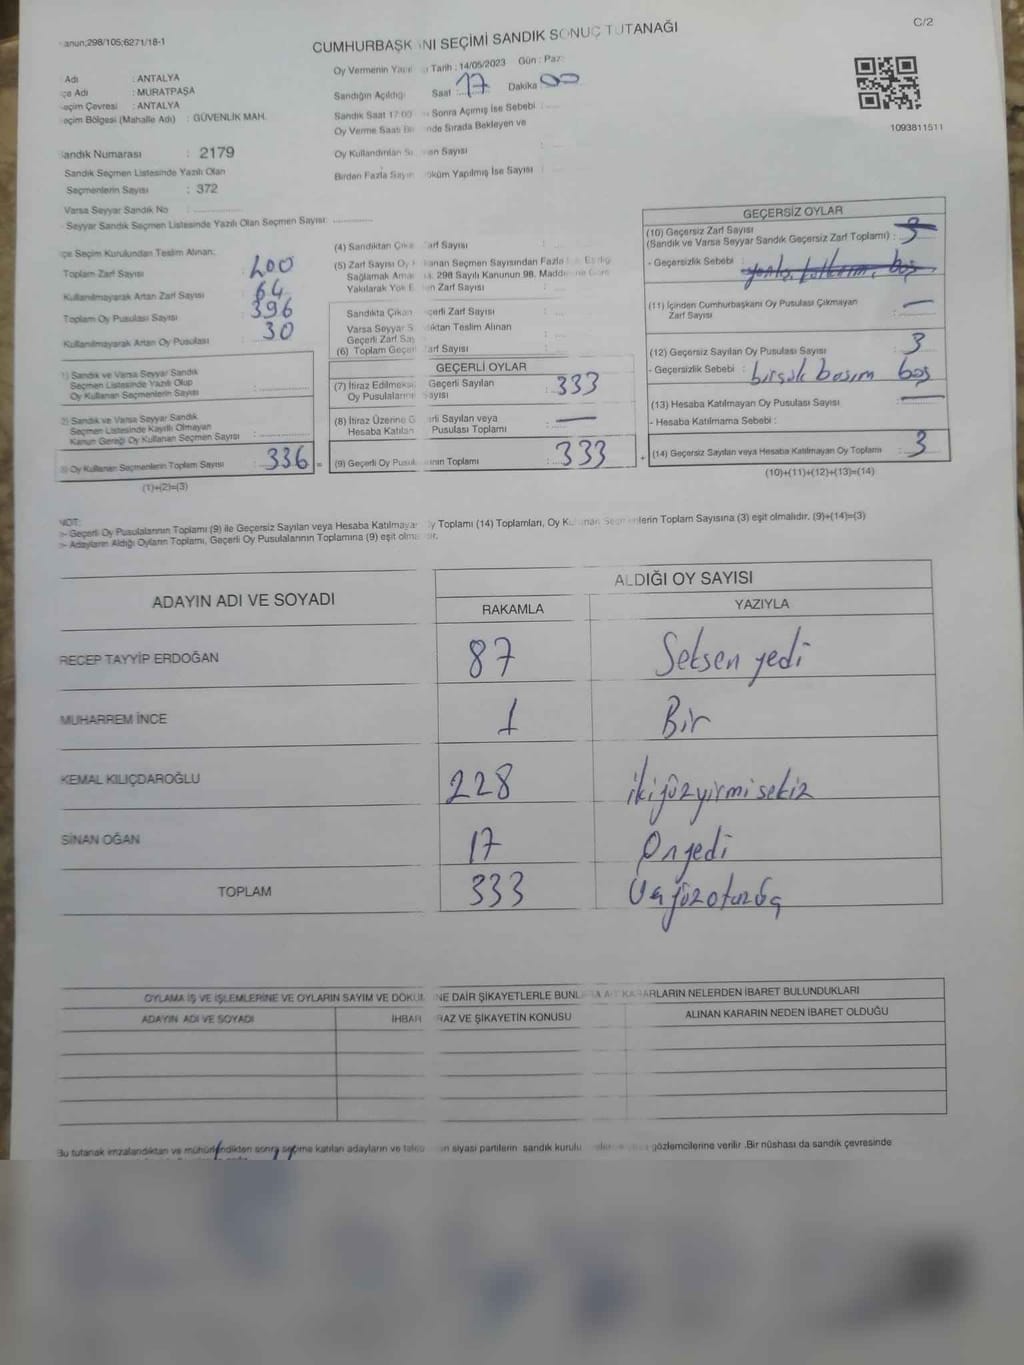 C/2
CUMHURBAŞK NI SEÇİMİ SANDIK SONUÇ TUTANAĞI
anun;298/105;6271/18-1
Adı : ANTALYA
çe Adı : MURATPAŞA
eçim Çevresi : ANTALYA
eçim Bölgesi (Mahalle Adı) : GÜVENLİK MAH.
Sandık Numarası : 2179
Sandık Seçmen Listesinde Yazılı Olan
Seçmenlerin Sayısı : 372
Varsa Seyyar Sandık No
Seyyar Sandık Seçmen Listesinde Yazılı Olan Seçmen Sayısı:
Oy Vermenin Tarih : 14/05/2023 Gün : Paz
Sandığın Açıldığı Saat : 17 Dakika 00
Sandık Saat 17:00 Sonra Açımış İse Sebebi :
Oy Verme Saati nde Sırada Bekleyen ve
Oy Kullandırılan Sayısı
Birden Fazla Sayım öküm Yapılmış İse Sayısı
1093811511
çe Seçim Kurulundan Teslim Alınan:
Toplam Zarf Sayısı : 400
Kullanılmayarak Artan Zarf Sayısı : 64
Toplam Oy Pusulası Sayısı : 396
Kullanılmayarak Artan Oy Pusulası : 30
1) Sandık ve Varsa Seyyar Sandık
Seçmen Listesinde Yazılı Olup
Oy Kullanan Seçmenlerin Sayısı
2) Sandık ve Varsa Seyyar Sandık
Seçmen Listesinde Kayıtlı Olmayan
Kanun Gereği Oy Kullanan Seçmen Sayısı
3) Oy Kullanan Seçmenlerin Toplam Sayısı : 336 =
(1)+(2)=(3)
(4) Sandıktan Çıka arf Sayısı
(5) Zarf Sayısı Oy anan Seçmen Sayısından Fazla
Sağlamak Ama 298 Sayılı Kanunun 98. Madd
Yakılarak Yok E en Zarf Sayısı
Sandıkta Çıkan çerli Zarf Sayısı
Varsa Seyyar S dıktan Teslim Alınan
Geçerli Zarf Say
(6) Toplam Geçer arf Sayısı
GEÇERLİ OYLAR
(7) İtiraz Edilmeksi Geçerli Sayılan
Oy Pusulalarının ayısı : 333
(8) İtiraz Üzerine G erli Sayılan veya
Hesaba Katılan Pusulası Toplamı : —
(9) Geçerli Oy Pusul ının Toplamı : 333 +
GEÇERSİZ OYLAR
(10) Geçersiz Zarf Sayısı
(Sandık ve Varsa Seyyar Sandık Geçersiz Zarf Toplamı) : 3
- Geçersizlik Sebebi :
(11) İçinden Cumhurbaşkanı Oy Pusulası Çıkmayan
Zarf Sayısı : —
(12) Geçersiz Sayılan Oy Pusulası Sayısı : 3
- Geçersizlik Sebebi : birçok basım boş
(13) Hesaba Katılmayan Oy Pusulası Sayısı : —
- Hesaba Katılmama Sebebi :
(14) Geçersiz Sayılan veya Hesaba Katılmayan Oy Toplamı : 3
(10)+(11)+(12)+(13)=(14)
NOT:
:- Geçerli Oy Pusulalarının Toplamı (9) ile Geçersiz Sayılan veya Hesaba Katılmaya y Toplamı (14) Toplamları, Oy Kullanan Seçmenlerin Toplam Sayısına (3) eşit olmalıdır. (9)+(14)=(3)
:- Adayların Aldığı Oyların Toplamı, Geçerli Oy Pusulalarının Toplamına (9) eşit olma ır.
ADAYIN ADI VE SOYADI ALDIĞI OY SAYISI
RAKAMLA YAZIYLA
RECEP TAYYİP ERDOĞAN 87 Seksen yedi
MUHARREM İNCE 1 Bir
KEMAL KILIÇDAROĞLU 228 ikiyüzyirmisekiz
SİNAN OĞAN 17 Onyedi
TOPLAM 333 Üçyüzotuzüç
OYLAMA İŞ VE İŞLEMLERİNE VE OYLARIN SAYIM VE DÖKÜM NE DAİR ŞİKAYETLERLE BUNL KARARLARIN NELERDEN İBARET BULUNDUKLARI
ADAYIN ADI VE SOYADI İHBAR RAZ VE ŞİKAYETİN KONUSU ALINAN KARARIN NEDEN İBARET OLDUĞU
Bu tutanak imzalandıktan ve mühürlendikten sonra seçime katılan adayların ve talep en siyasi partilerin sandık kurulu gözlemcilerine verilir .Bir nüshası da sandık çevresinde